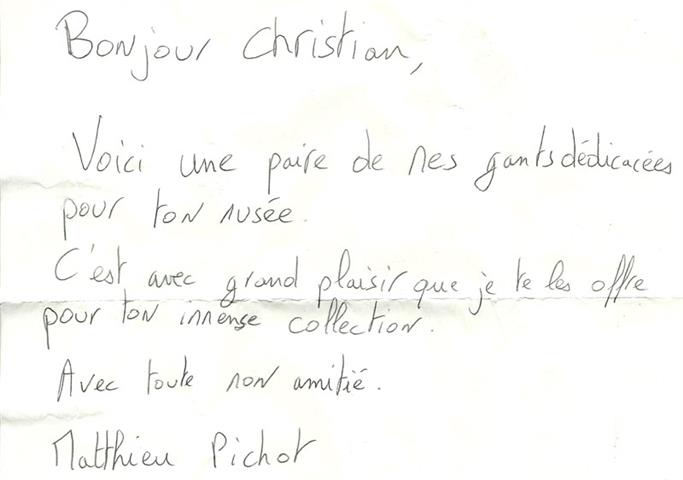 Bonjour Christian,
Voici une paire de mes gants dédicacées
pour ton musée.
C'est avec grand plaisir que je te les offre
pour ton immense collection.
Avec toute mon amitié.
Matthieu Pichot